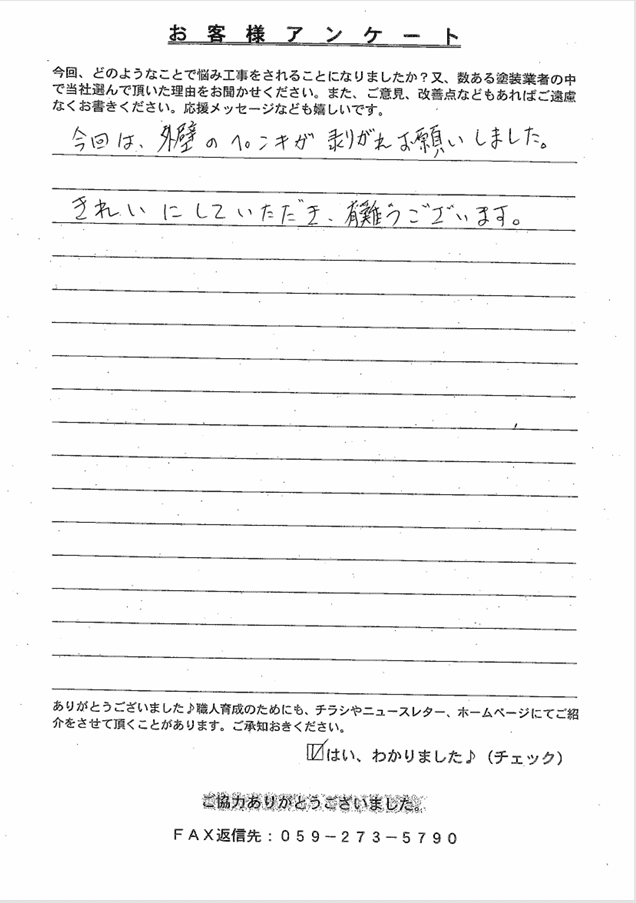 お客様アンケート
今回、どのようなことで悩み工事をされることになりましたか？又、数ある塗装業者の中
で当社選んで頂いた理由をお聞かせください。また、ご意見、改善点などもあればご遠慮
なくお書きください。応援メッセージなども嬉しいです。
今回は、外壁のペンキが剥がれお願いしました。
きれいにしていただき、有難うございます。
ありがとうございました♪職人育成のためにも、チラシやニュースレター、ホームページにてご紹
介をさせて頂くことがあります。ご承知おきください。
はい、わかりました♪（チェック）
ご協力ありがとうございました。
ＦＡＸ返信先：０５９－２７３－５７９０